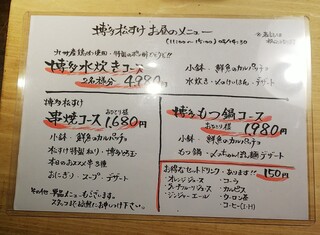 博多松すけ お昼のメニュー
(11:00〜15:00)
博多水炊きコース
2名様分 4,980円
小鉢・鮮魚のカルパッチョ
水炊き・〆のけいはん・デザート
博多松すけ
串焼コース 1,680円
おひとり様
小鉢・鮮魚のカルパッチョ
本日のおススメ串3種
おにぎり・スープ・デザート
その他、単品メニューもございます。
スタッフまでお気軽にお申しつけ下さい。
博多もつ鍋コース
おひとり様 1,980円
小鉢・鮮魚のカルパッチョ
もつ鍋・〆のちゃんぽん麺・デザート
お得なセットドリンクあります!! 150円
・オレンジジュース ・コーラ
・グレープフルーツジュース ・カルピス
・ジンジャーエール ・ウーロン茶
・コーヒー(I・H)